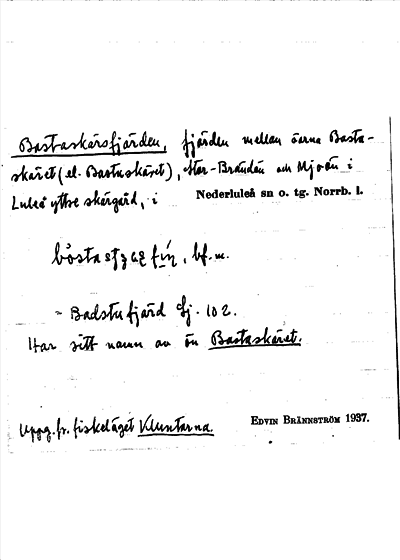 Bastaskärsfjärden, fjärden mellan öarna Basta-
skäret (el. Bastuskäret), Stor-Brändön och Mjoön i
Luleå yttre skärgård, i Nederluleå sn o. tg. Norrb. l.
bf. m.
~ Badstufjärd Sj. 102.
Har sitt namn av ön Bastaskäret.
Uppg. fr. fiskeläget Kluntarna. EDVIN BRÄNNSTRÖM 1937.